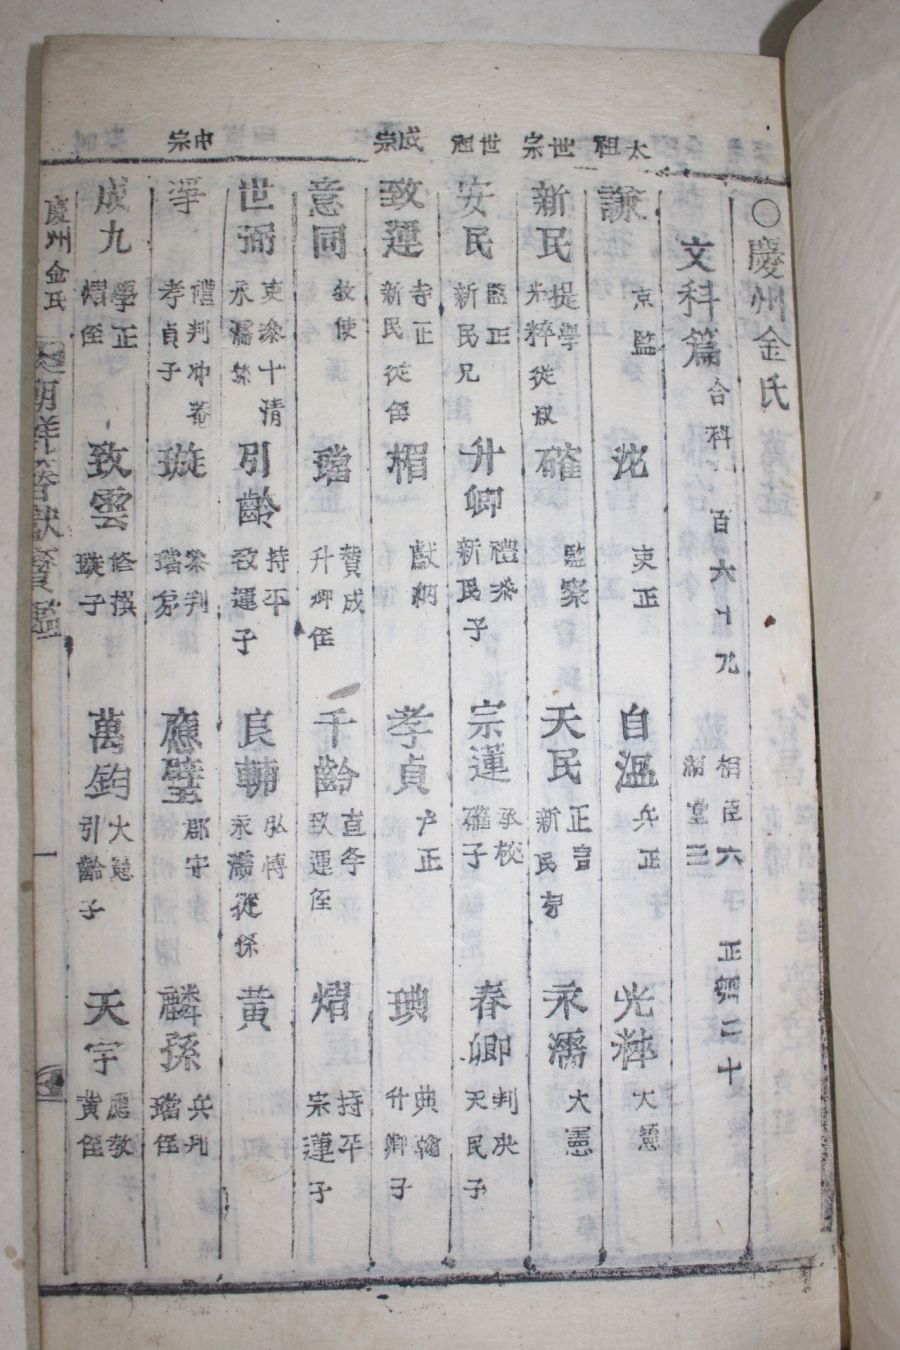 太祖
世宗
世祖
成宗
中宗
○慶州金氏
文科篇 合科 百六十九 相臣六 文衡 正卿二十
謙 京監 沱 吏正 自溫 兵正 光粹 大憲
新民 提學 光粹從叔 確 監察 天民 正言 新民 永濡 大憲
安民 監正 新民兄 升卿 禮參 新民子 宗蓮 承校 確子 春卿 判決 天民子
致運 寺正 新民從侄 楣 獻納 孝貞 戶正 璜 典翰 升卿子
意同 牧使 璫 贊成 升卿侄 千齡 直學 致運侄 熠 持平 宗蓮子
世弼 吏參十清 永濡孫 引齡 持平 致運子 良輔 弘博 永濡從孫 黃
淨 禮判冲菴 孝貞子 璇 參判 璫弟 應璧 郡守 麟孫 兵判 璫侄
成九 學正 楣侄 致雲 修撰 璇子 萬鈞 大憲 引齡子 天宇 應敎 黃侄
慶州金氏 一